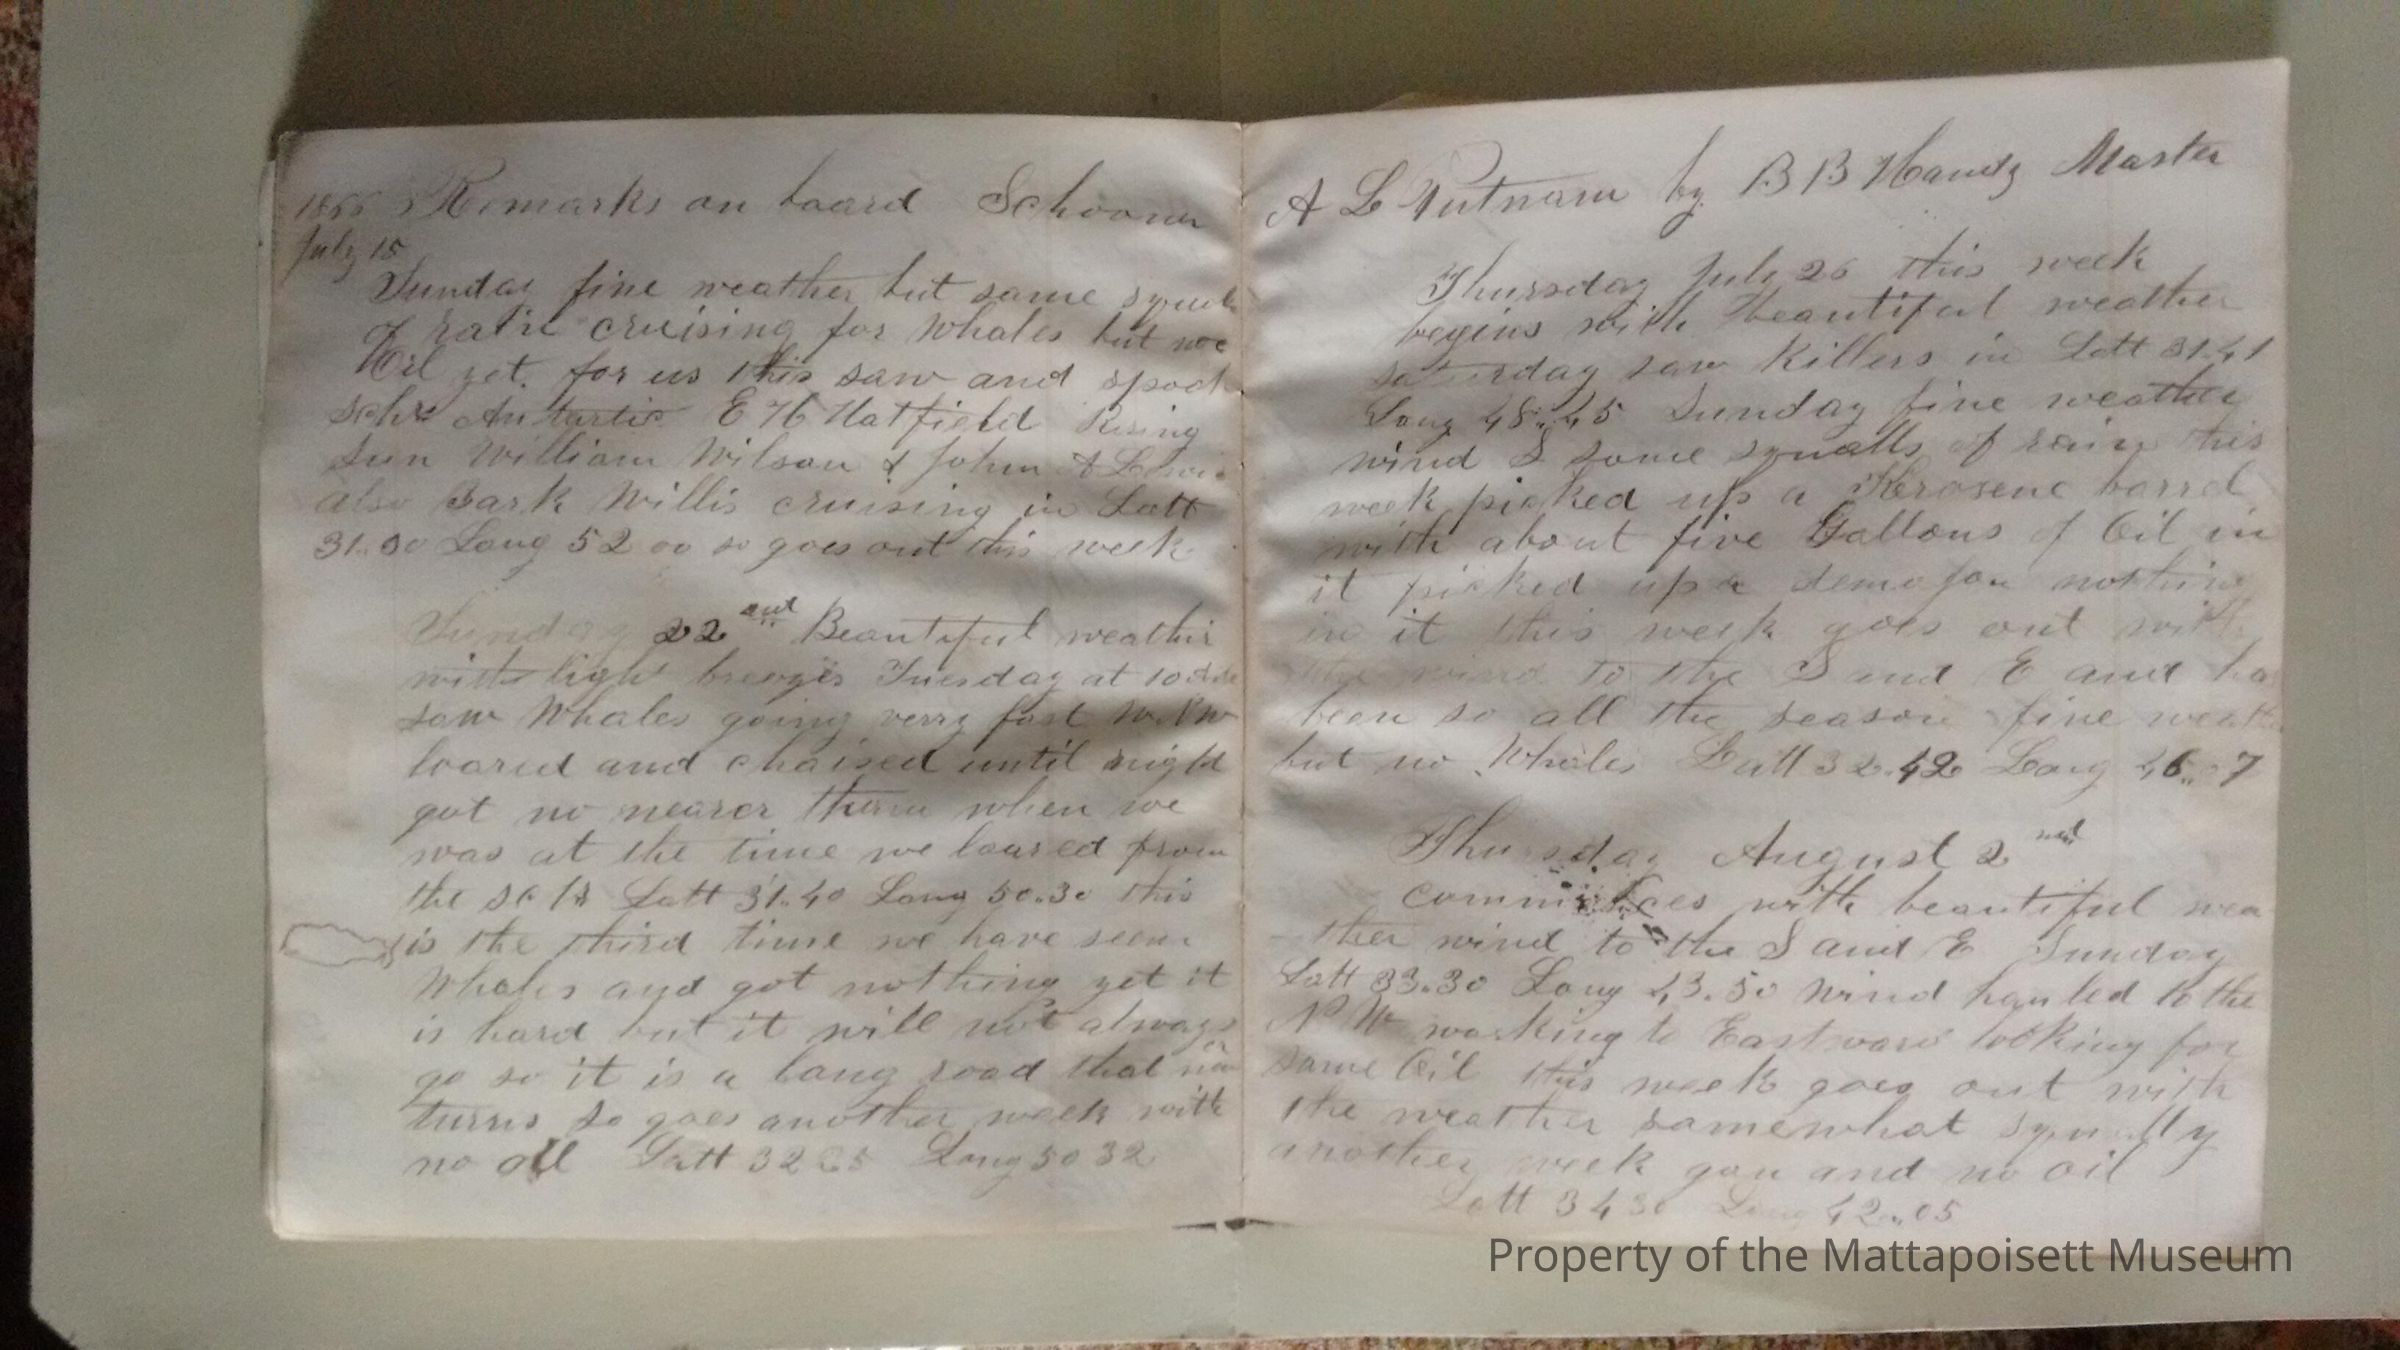 1866 Remarks on board Schooner
July 15
Sunday fine weather but some squals
of rain cruising for Whales but no
Oil yet. for us this saw and spock
schr Antartic E H Hatfield Rising
Sun William Wilson & John A Lewis
also Bark Willis cruising in Latt
31..00 Long 52 00 so goes out this week
Sunday 22 and Beautiful weather
with light breezes Tuesday at 10
saw Whales going verry fast W.N.W
loared and chaised until night
got no nearer them when we
was at the time we loared from
the schr Latt 31..40 Long 50..30 this
is the third time we have seen
Whales and got nothing yet it
is hard but it will not always
go so it is a long road that never
turns so goes another week with
no oil Latt 32 Long 50 32
A L Putnam by B B Handy Master
Thursday July 26 this week
begins with beautiful weather
saturday saw Killers in Latt 31..41
Long 48..45 Sunday fine weather
wind S some squalls of rain this
week picked up a Kerosene barrel
with about five Gallons of Oil in
it picked up a demojon nothing
in it this week goes out with
the wind to the S and E and has
been so all the season fine weather
but no Whales Latt 32..42 Long 46..07
Thursday August 2 nd
commences with beautiful wea
-ther wind to the S and E Sunday
Latt 33..30 Long 43..50 Wind hauled to the
N W working to Eastward looking for
some Oil this week goes out with
the weather somewhat squally
another week gon and no oil
Latt 34 30 Long 42..05
Property of the Mattapoisett Museum